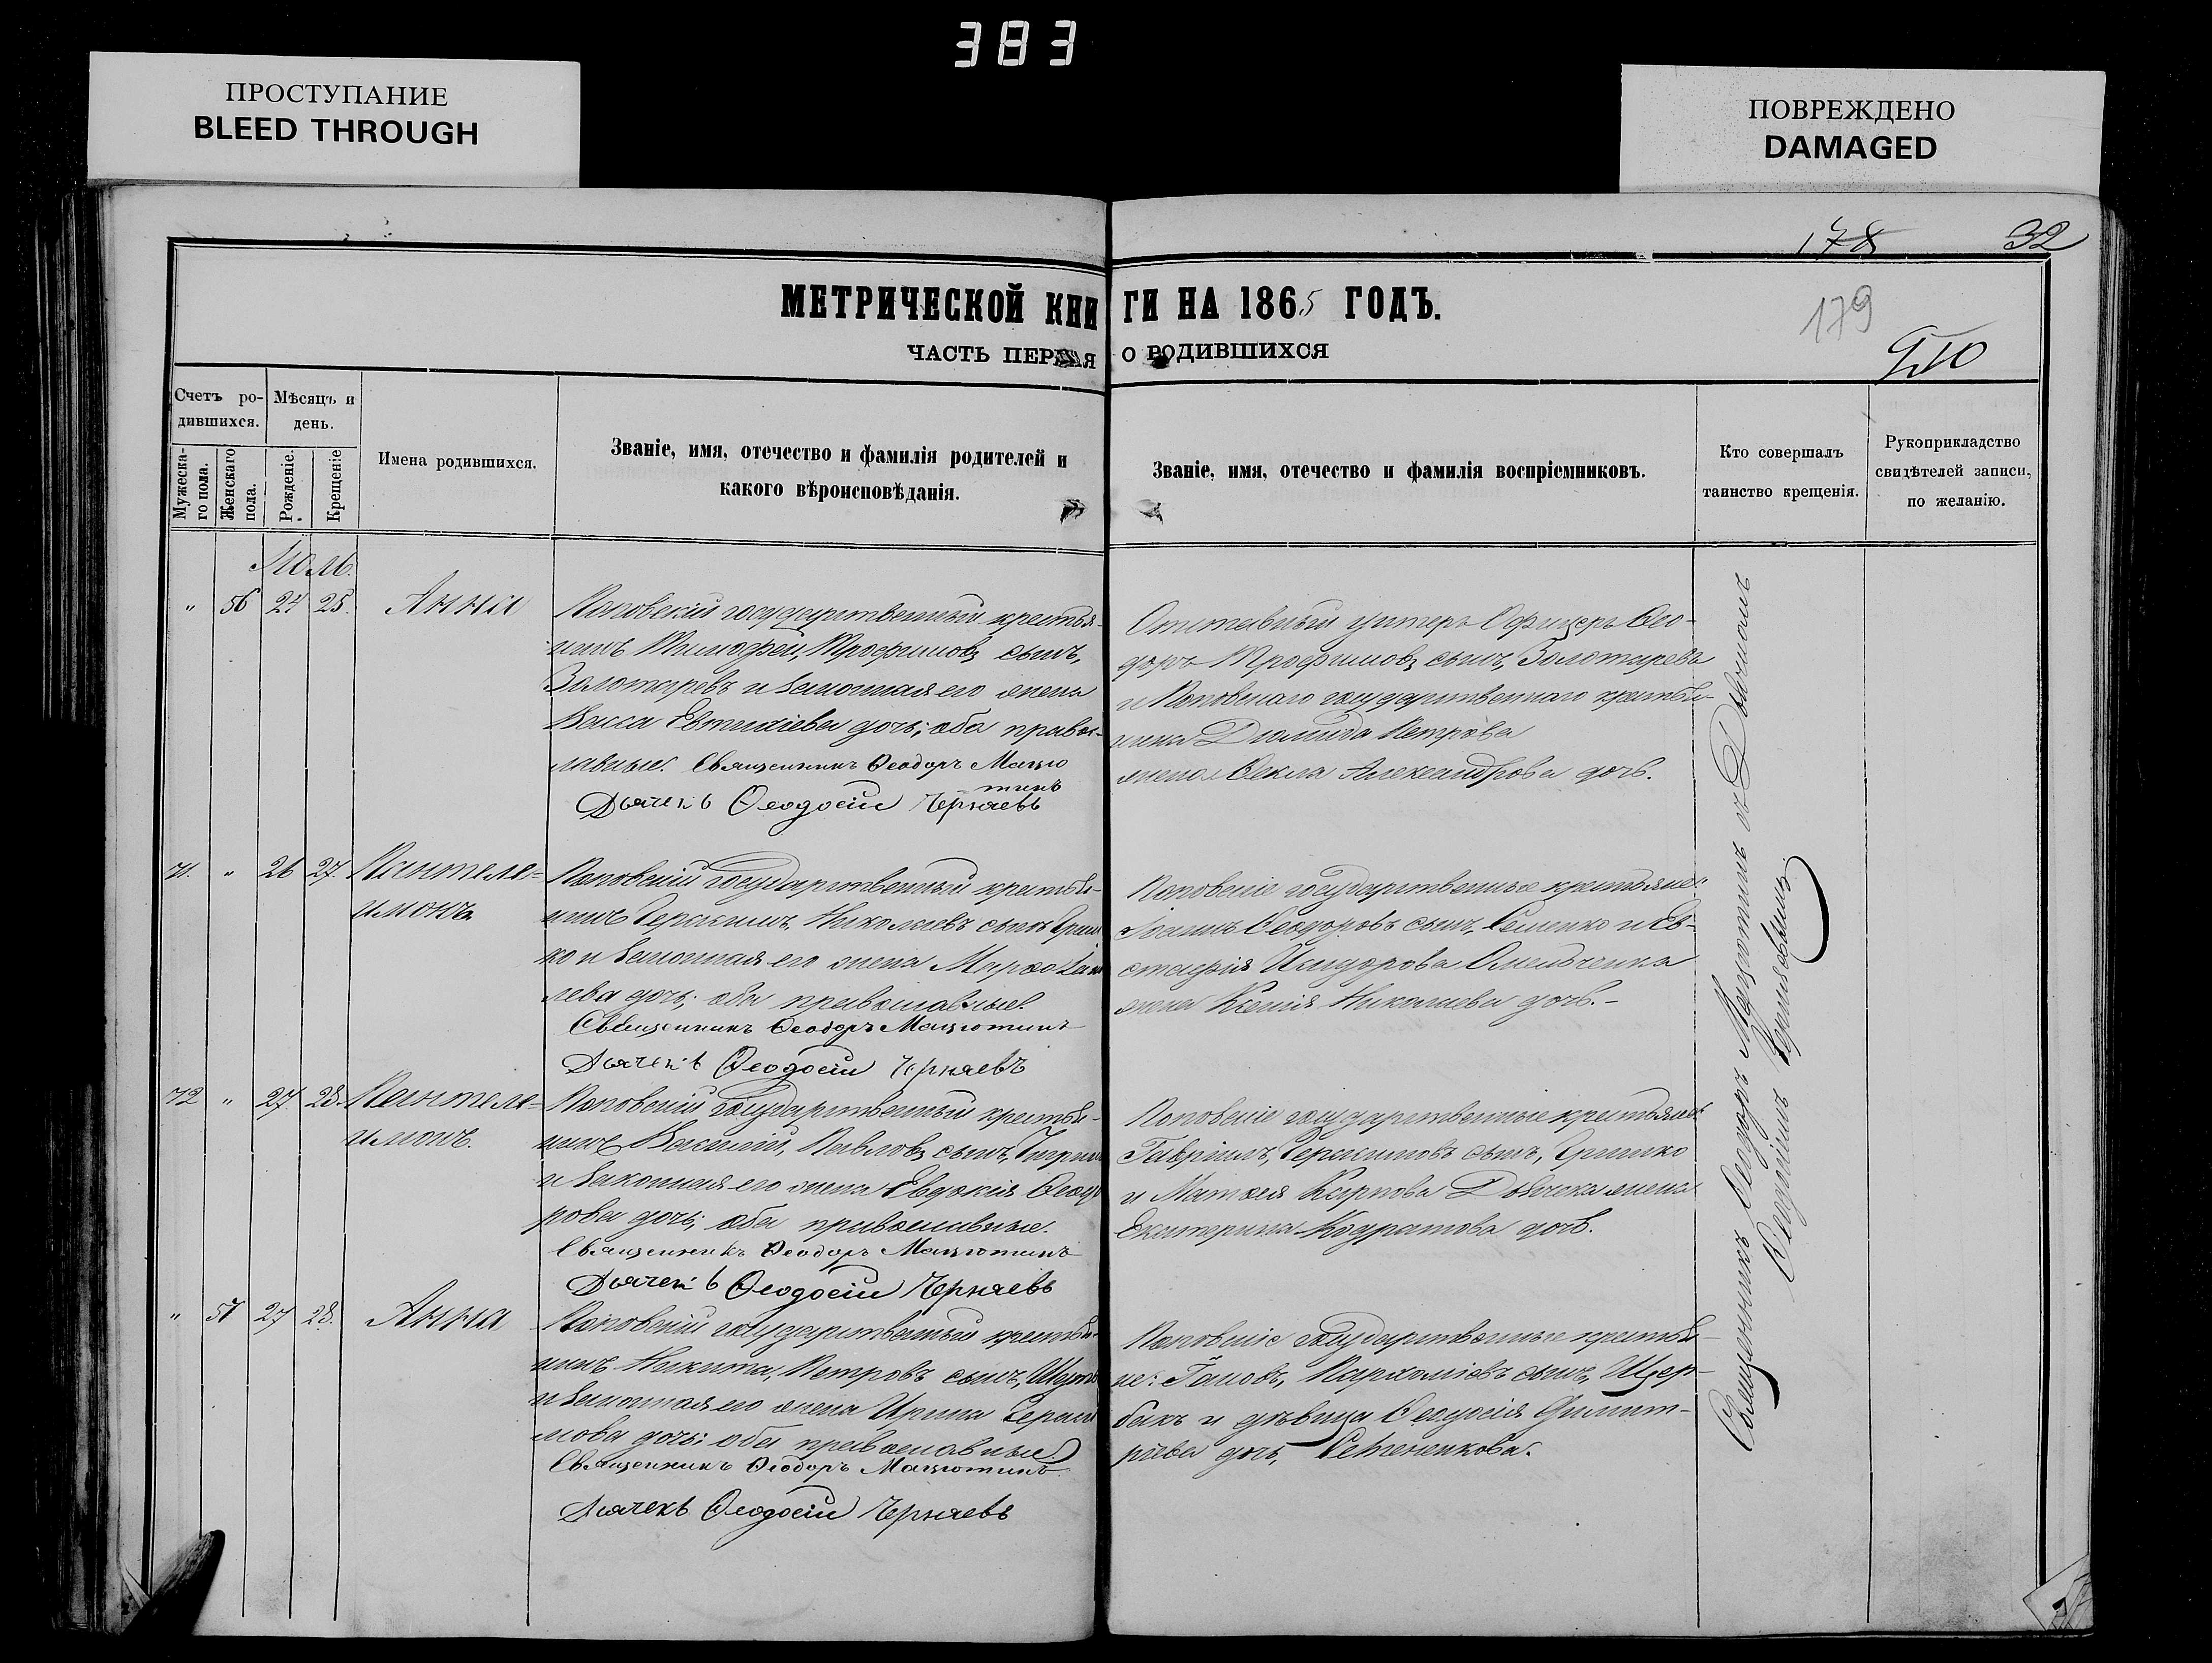 383
ПРОСТУПАНИЕ
BLEED THROUGH
ПОВРЕЖДЕНО
DAMAGED
178 32
МЕТРИЧЕСКОЙ КНИ ГИ НА 1865 ГОДЪ.
179
ЧАСТЬ ПЕРВАЯ О РОДИВШИХСЯ
Счетъ ро-
дившихся.
Мужеска-
го пола.
Женскаго
пола.
Мѣсяцъ и
день.
Рожденіе.
Крещеніе
Имена родившихся.
Званіе, имя, отечество и фамилія родителей и
какого вѣроисповѣданія.
Званіе, имя, отечество и фамилія воспріемниковъ.
Кто совершалъ
таинство крещенія.
Рукоприкладство
свидѣтелей записи,
по желанію.
Іюль.
" 56 24 25. Анна
Поповскій государственный крестья-
нинъ Тимофей, Трофимовъ сынъ,
Золотаревъ и законная его жена
Васса Евтихіева дочь; оба правос-
лавные. Священникъ Ѳеодоръ Мацю
тинъ
Дьячекъ Ѳеодосій Черняевъ
Отставный унтеръ Офицеръ Ѳео-
доръ Трофимовъ сынъ, Золотаревъ
и Поповскаго государственнаго крестья-
нина Диомида Петрова
жена Ѳекла Александрова дочь.
71. " 26 27. Пантеле=
имонъ
Поповскій государственный крестья-
нинъ Герасимъ, Николаевъ сынъ
ко и законная его жена Марѳа
лева дочь; оба православные.
Священникъ Ѳеодоръ Мацютинъ
Дьячекъ Ѳеодосій Черняевъ
Поповскіе государственные крестьяне:
Іоаннъ Ѳеодоровъ сынъ, Семенко и Ев-
стафія Исидорова Омельченка
жена Ксенія Николаева дочь.-
72 " 27. 28. Пантеле=
имонъ.
Поповскій государственный крестья-
нинъ Василій, Павловъ сынъ,
и законная его жена Евдокія Ѳеодо
рова дочь; оба православные.
Священникъ Ѳеодоръ Мацютинъ
Дьячекъ Ѳеодосій Черняевъ
Поповскіе государственные крестьяне:
Гавріилъ, Герасимовъ сынъ, Гринько
и Матѳея Карпова жена
Екатерина Кодратова дочь.
" 57 27 28. Анна
Поповскій государственный крестья-
нинъ Никита, Петровъ сынъ,
и законная его жена Ирина Гераси
мова дочь; оба православные.
Священникъ Ѳеодоръ Мацютинъ
Дьячекъ Ѳеодосій Черняевъ
Поповскіе государственные крестья-
не: Пархоміевъ сынъ, Щер-
бакъ и дѣвица Ѳеодосія Димит-
ріева дочь,
Священникъ Ѳеодоръ Мацютинъ съ Дьячкомъ
Ѳеодосіемъ Черняевымъ